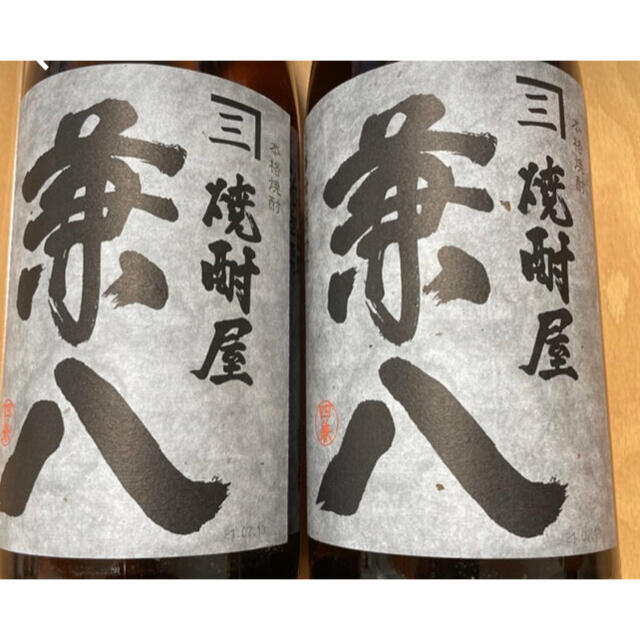 三
本格焼酎
焼酎屋
兼八
三
本格焼酎
焼酎屋
兼八